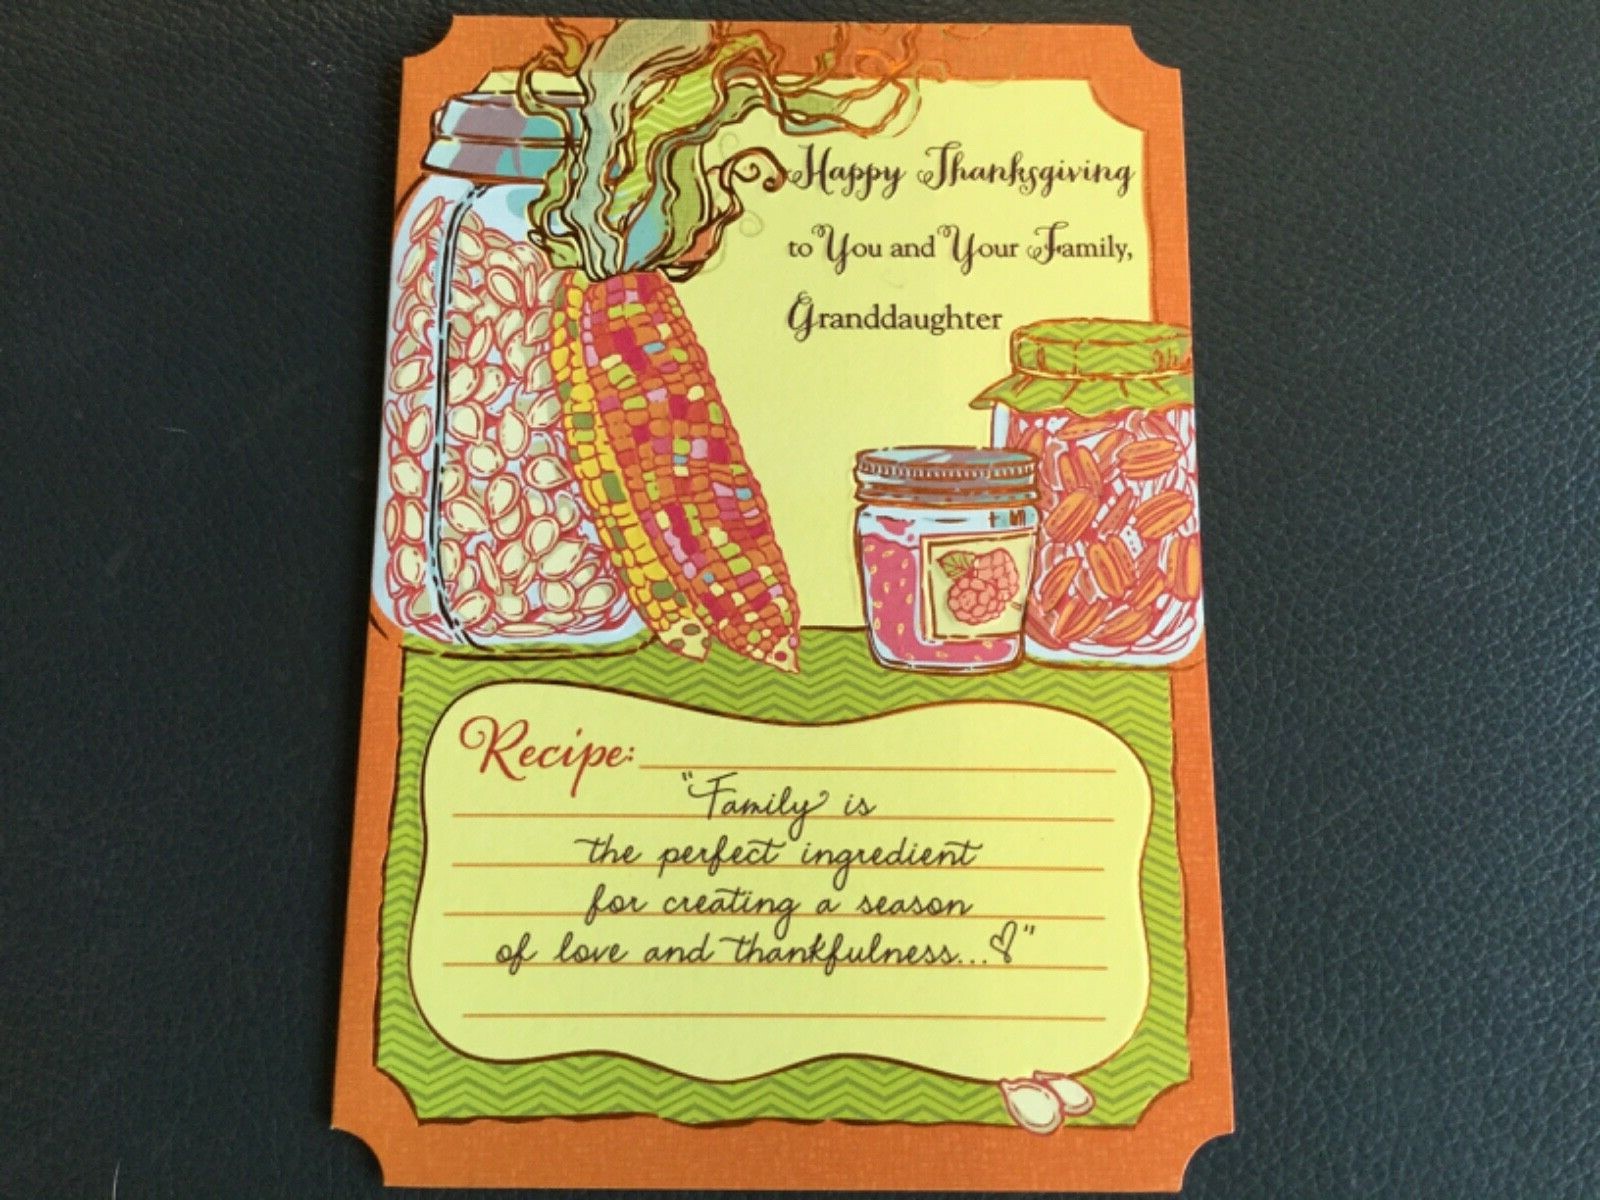 Happy Thanksgiving
to You and Your Family,
Granddaughter
Recipe:
"Family is
the perfect ingredient
for creating a season
of love and thankfulness...♡"